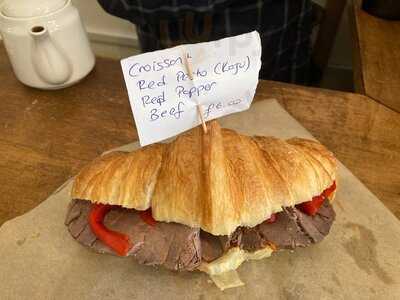 Croissant
Red Pesto (Kagu)
Red Pepper
Beef £6.00